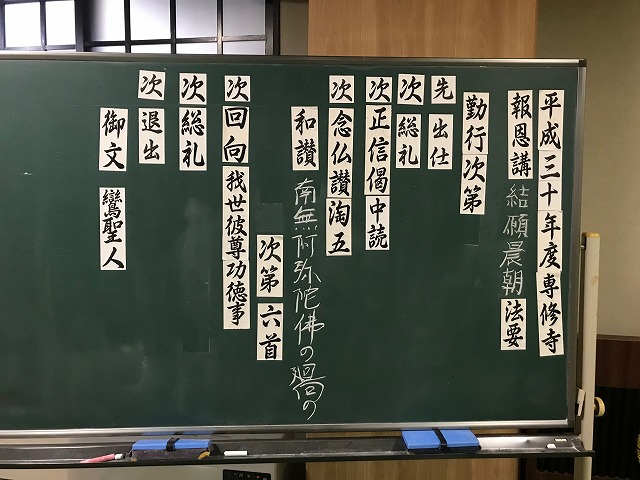 平成三十年度専修寺
報恩講結願晨朝法要
勤行次第
先 出仕
次 総礼
次 正信偈 中読
次 念仏讃 淘五
和讃 南無阿弥陀佛の廻向の
次第 六首
次 回向 我世彼尊功徳事
次 総礼
次 退出
御文 鸞聖人